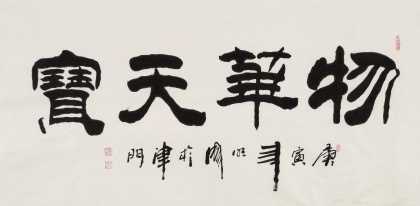 物華天寶
庚寅年於津門